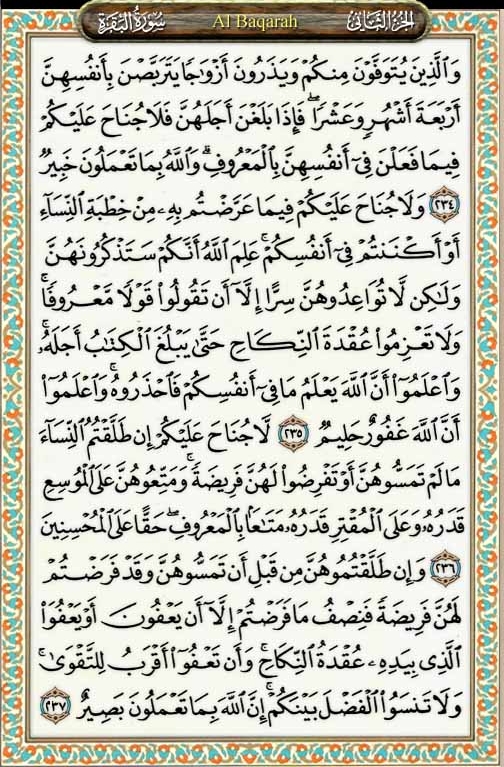 سُورَةُ البَقَرَةِ Al Baqarah الجُزءُ الثَّانِي
وَالَّذِينَ يُتَوَفَّوْنَ مِنكُمْ وَيَذَرُونَ أَزْوَاجًا يَتَرَبَّصْنَ بِأَنفُسِهِنَّ
أَرْبَعَةَ أَشْهُرٍ وَعَشْرًا ۖ فَإِذَا بَلَغْنَ أَجَلَهُنَّ فَلَا جُنَاحَ عَلَيْكُمْ
فِيمَا فَعَلْنَ فِي أَنفُسِهِنَّ بِالْمَعْرُوفِ ۗ وَاللَّهُ بِمَا تَعْمَلُونَ خَبِيرٌ
٢٣٤ وَلَا جُنَاحَ عَلَيْكُمْ فِيمَا عَرَّضْتُم بِهِ مِنْ خِطْبَةِ النِّسَاءِ
أَوْ أَكْنَنتُمْ فِي أَنفُسِكُمْ ۚ عَلِمَ اللَّهُ أَنَّكُمْ سَتَذْكُرُونَهُنَّ
وَلَٰكِن لَّا تُوَاعِدُوهُنَّ سِرًّا إِلَّا أَن تَقُولُوا قَوْلًا مَّعْرُوفًا ۚ
وَلَا تَعْزِمُوا عُقْدَةَ النِّكَاحِ حَتَّىٰ يَبْلُغَ الْكِتَابُ أَجَلَهُ ۚ
وَاعْلَمُوا أَنَّ اللَّهَ يَعْلَمُ مَا فِي أَنفُسِكُمْ فَاحْذَرُوهُ ۚ وَاعْلَمُوا
أَنَّ اللَّهَ غَفُورٌ حَلِيمٌ ٢٣٥ لَّا جُنَاحَ عَلَيْكُمْ إِن طَلَّقْتُمُ النِّسَاءَ
مَا لَمْ تَمَسُّوهُنَّ أَوْ تَفْرِضُوا لَهُنَّ فَرِيضَةً ۚ وَمَتِّعُوهُنَّ عَلَى الْمُوسِعِ
قَدَرُهُ وَعَلَى الْمُقْتِرِ قَدَرُهُ مَتَاعًا بِالْمَعْرُوفِ ۖ حَقًّا عَلَى الْمُحْسِنِينَ
٢٣٦ وَإِن طَلَّقْتُمُوهُنَّ مِن قَبْلِ أَن تَمَسُّوهُنَّ وَقَدْ فَرَضْتُمْ
لَهُنَّ فَرِيضَةً فَنِصْفُ مَا فَرَضْتُمْ إِلَّا أَن يَعْفُونَ أَوْ يَعْفُوَا
الَّذِي بِيَدِهِ عُقْدَةُ النِّكَاحِ ۚ وَأَن تَعْفُوا أَقْرَبُ لِلتَّقْوَىٰ ۚ
وَلَا تَنسَوُا الْفَضْلَ بَيْنَكُمْ ۚ إِنَّ اللَّهَ بِمَا تَعْمَلُونَ بَصِيرٌ ٢٣٧